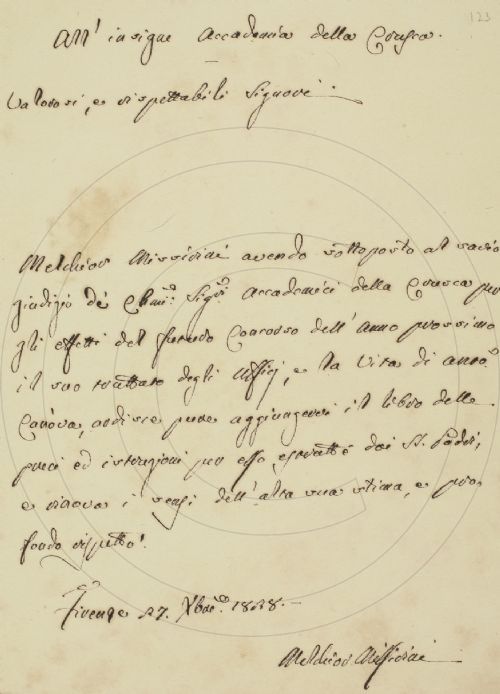 123
All' insigne Accademia della Crusca.
Valorosi, e rispettabili Signori.
Melchior Missirini avendo sottoposto al savio
giudizio de' Chmi: Sigri Accademici della Crusca per
gli effetti del futuro Concorso dell'anno prossimo
il suo trattato degli Uffizj, e la Vita di Anto
Canova, ardisce pure aggiungervi il libro delle
preci ed istruzioni per esso estratte dai SS. Padri,
e rinnova i sensi dell'alta sua stima, e pro-
fondo rispetto.
Firenze 27. Xbre 1828.
Melchior Missirini